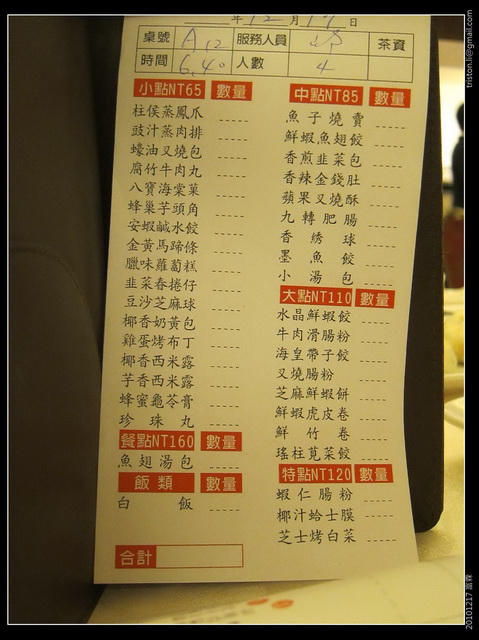 年 12 月 17 日
桌號 A12 服務人員 茶資
時間 6.40 人數 4
小點NT65 數量
柱侯蒸鳳爪
豉汁蒸肉排
蠔油叉燒包
腐竹牛肉丸
八寶海棠菓
蜂巢芋頭角
安蝦鹹水餃
金黃馬蹄條
臘味蘿蔔糕
韭菜春捲仔
豆沙芝麻球
椰香奶黃包
雞蛋烤布丁
椰香西米露
芋香西米露
蜂蜜龜苓膏
珍珠丸
餐點NT160 數量
魚翅湯包
飯類 數量
白飯
合計
中點NT85 數量
魚子燒賣
鮮蝦魚翅餃
香煎韭菜包
香辣金錢肚
蘋果叉燒酥
九轉肥腸
香綉球
墨魚餃
小湯包
大點NT110 數量
水晶鮮蝦餃
牛肉滑腸粉
海皇帶子餃
叉燒腸粉
芝麻鮮蝦餅
鮮蝦虎皮卷
鮮竹卷
瑤柱莧菜餃
特點NT120 數量
蝦仁腸粉
椰汁蛤士膜
芝士烤白菜
triston.li@gmail.com
20101217 富霖